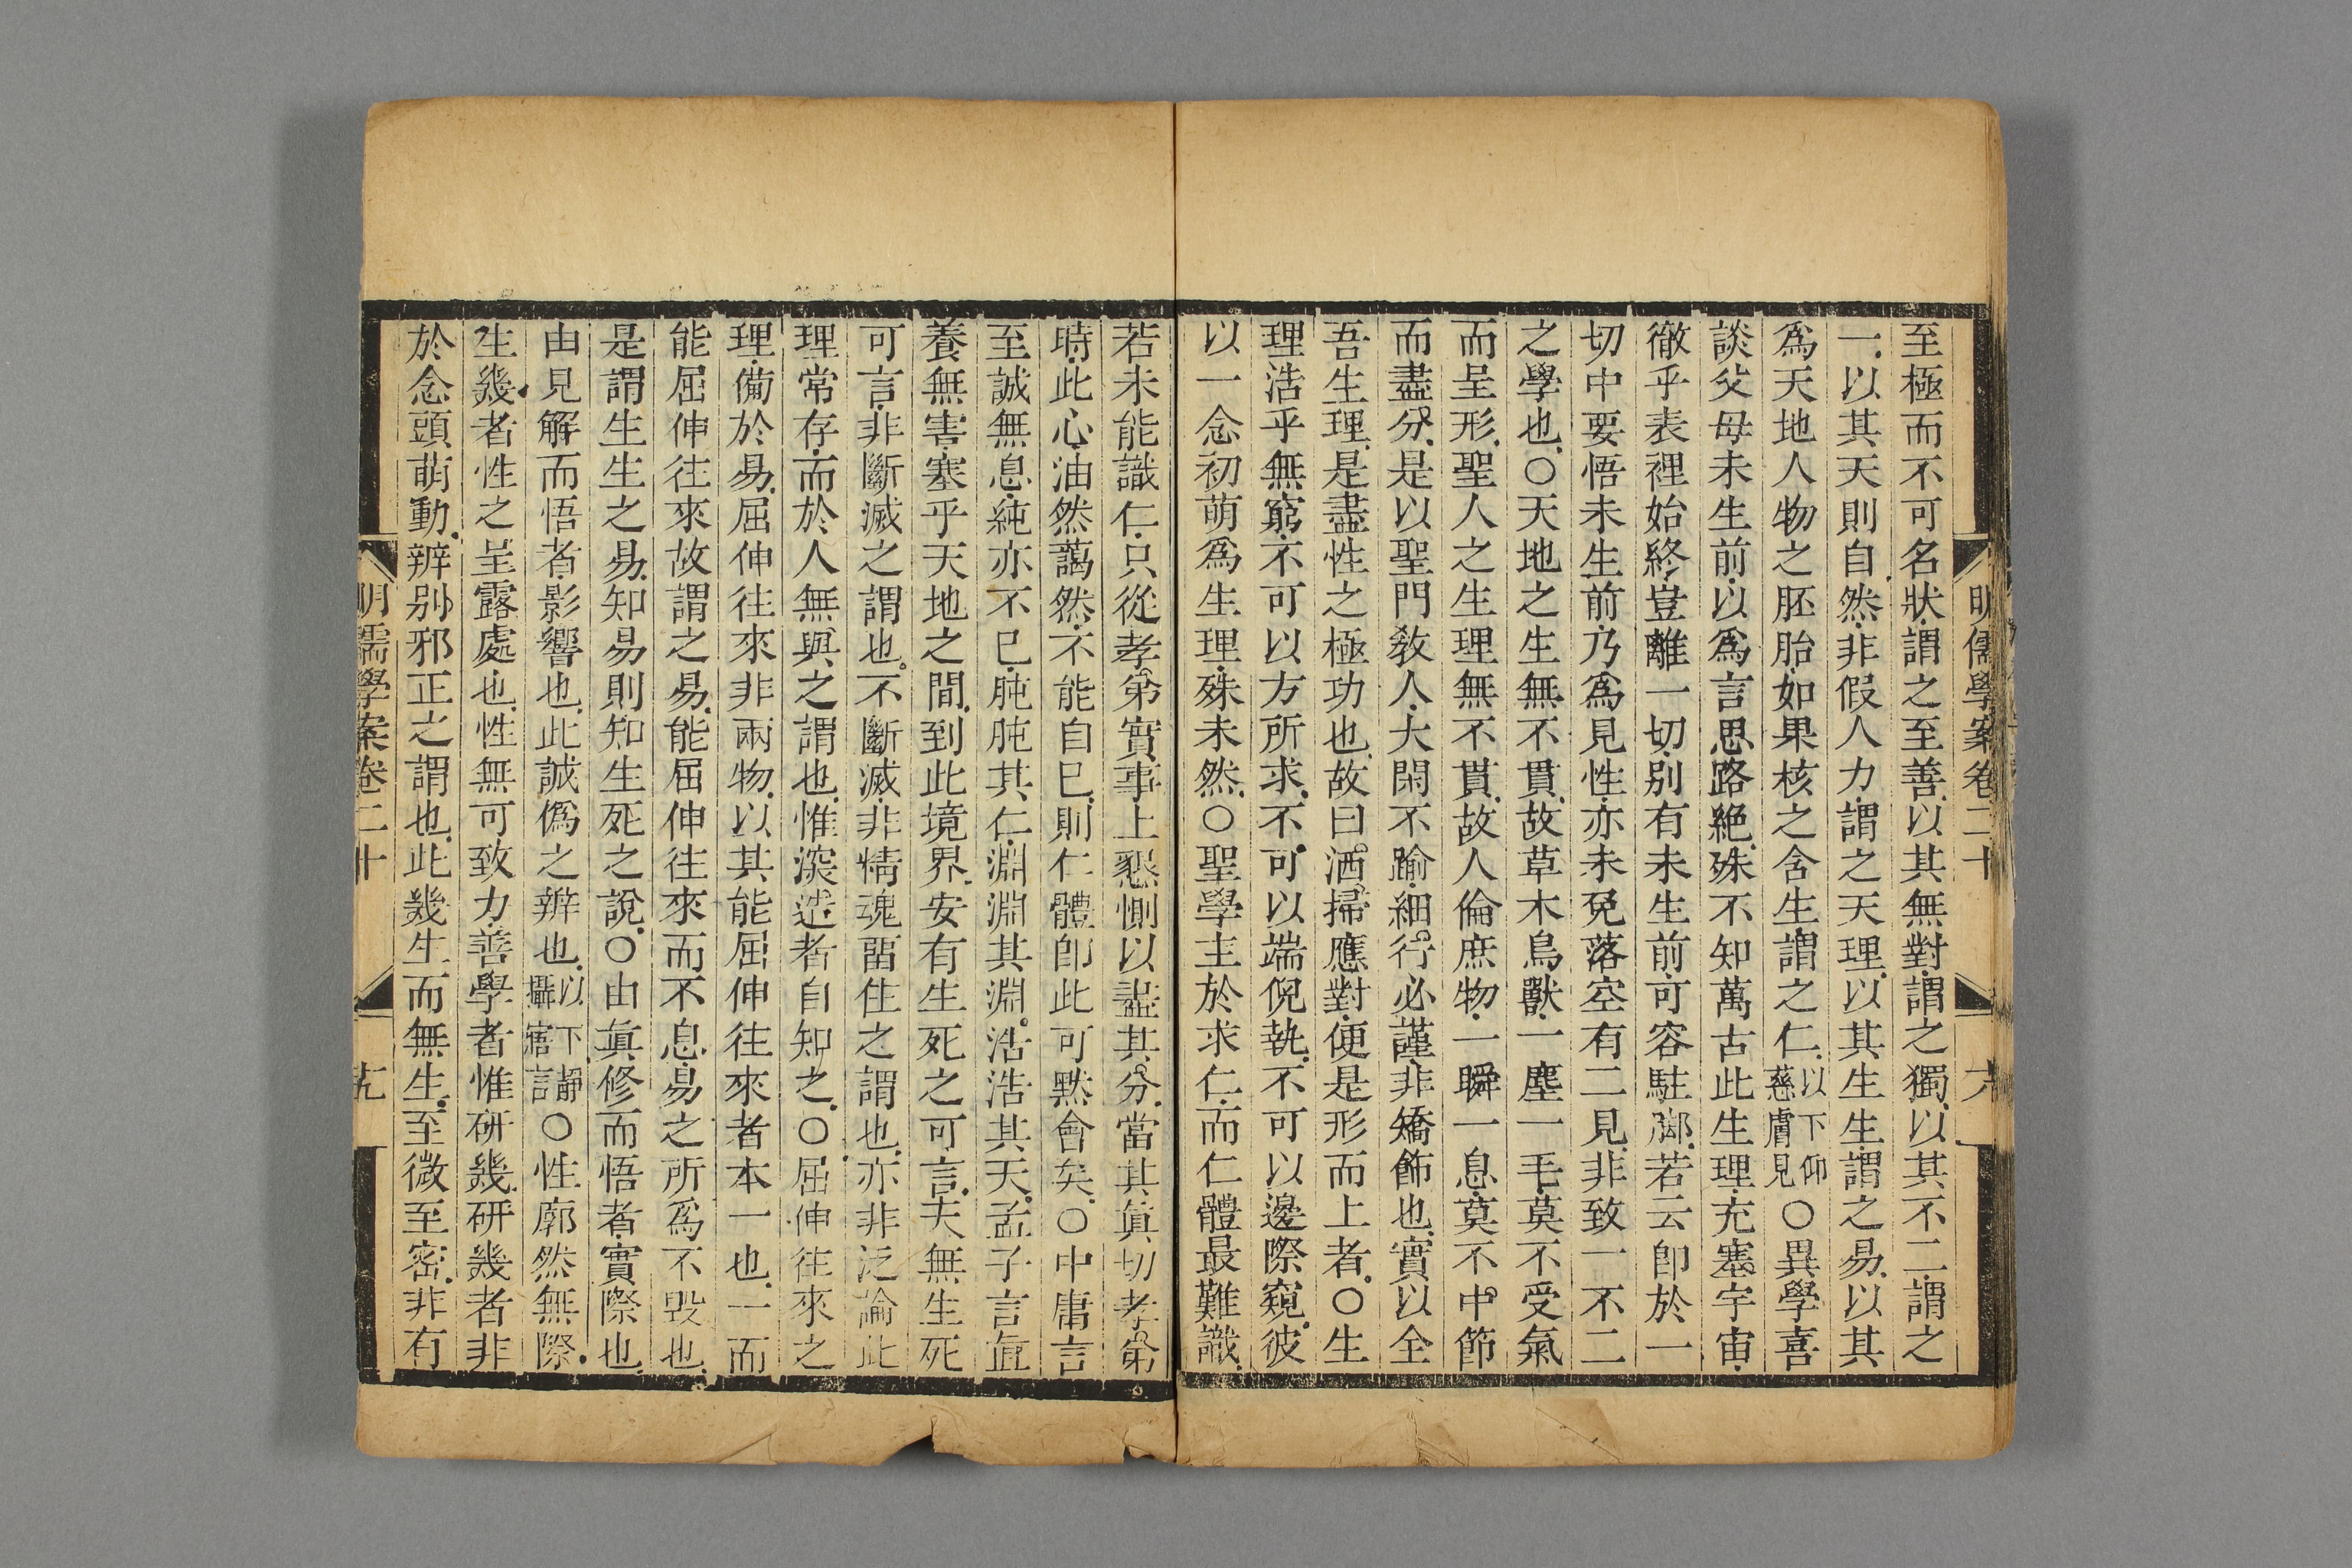 明儒學案卷二十
六
至極而不可名狀謂之至善以其無對謂之獨以其不二謂之
一以其天則自然非假人力謂之天理以其生生謂之易以其
爲天地人物之胚胎如果核之含生謂之仁以下仰慈膚見○異學喜
談父母未生前以爲言思路絕殊不知萬古此生理充塞宇宙
徹乎表裡始終豈離一切別有未生前可容駐腳若云卽於一
切中要悟未生前乃爲見性亦未免落空有二見非致一不二
之學也○天地之生無不貫故草木鳥獸一塵一毛莫不受氣
而呈形聖人之生理無不貫故人倫庶物一瞬一息莫不中節
而盡分是以聖門教人大閑不踰細行必謹非矯飾也實以全
吾生理是盡性之極功也故曰洒掃應對便是形而上者○生
理浩乎無窮不可以方所求不可以端倪執不可以邊際窺彼
以一念初萌爲生理殊未然○聖學主於求仁而仁體最難識
若未能識仁只從孝弟實事上懇惻以盡其分當其真切孝弟
時此心油然藹然不能自已則仁體卽此可默會矣○中庸言
至誠無息純亦不已肫肫其仁淵淵其淵浩浩其天孟子言直
養無害塞乎天地之間到此境界安有生死之可言夫無生死
可言非斷滅之謂也不斷滅非情魂留住之謂也亦非泛論此
理常存而於人無與之謂也惟深造者自知之○屈伸往來之
理備於易屈伸往來非兩物以其能屈伸往來者本一也一而
能屈伸往來故謂之易能屈伸往來而不息易之所爲不毀也
是謂生生之易知易則知生死之說○由真修而悟者實際也
由見解而悟者影響也此誠偽之辨也以下靜攝寤言○性廓然無際
生幾者性之呈露處也性無可致力善學者惟研幾研幾者非
於念頭萌動辨別邪正之謂也此幾生而無生至微至密非有
明儒學案卷二十